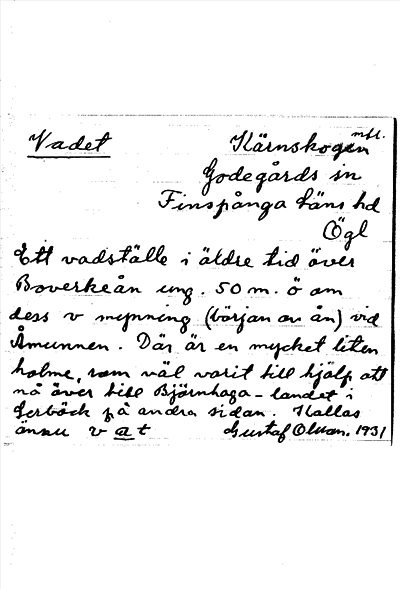 Vadet Kärnskogen mfl.
Godegårds sn
Finspånga läns hd
Ögl
Ett vadställe i äldre tid över
Boverkeån ung. 50 m. ö om
dess v mynning (början av ån) vid
Åmunnen. Där är en mycket liten
holme, som väl varit till hjälp att
nå över till Björnhaga-landet i
Lerbäck på andra sidan. Kallas
ännu v a t Gustaf Olsson. 1931